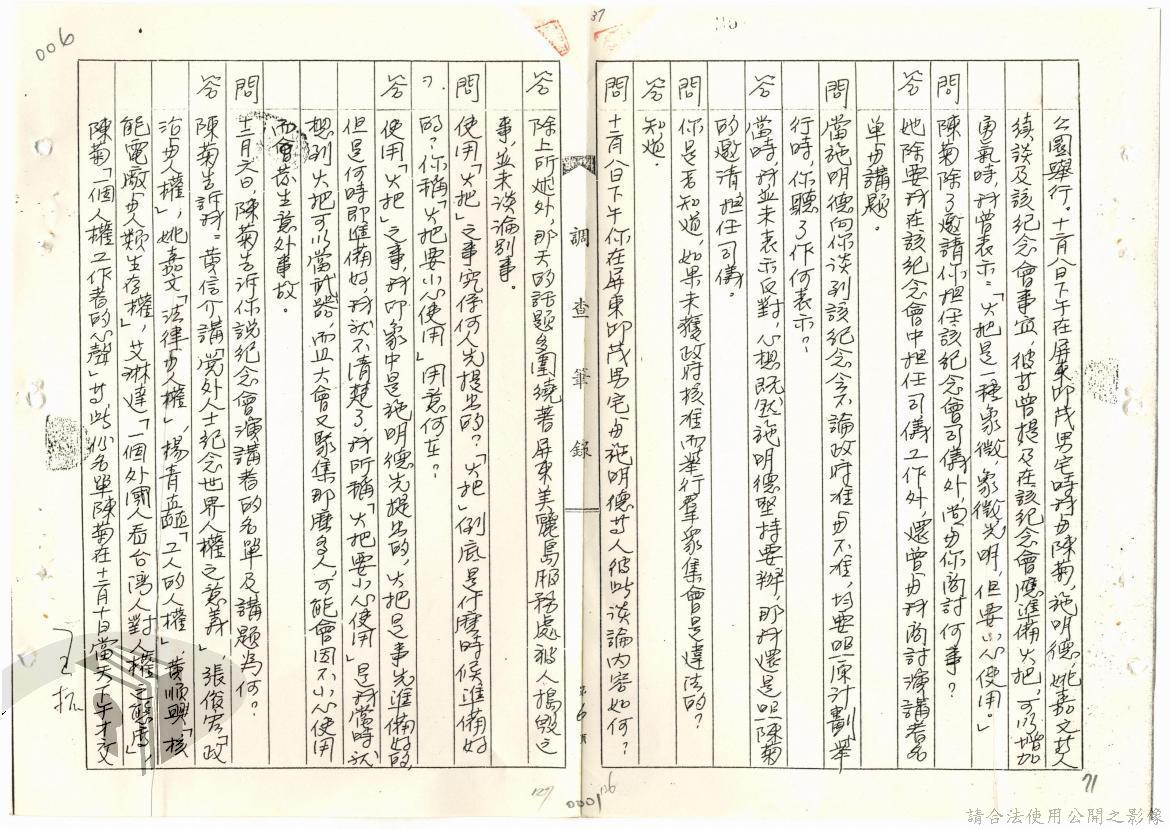 公園舉行。十二月八日下午在屏東邱茂男宅時我與陳菊、施明德、姚嘉文等人
續談及該紀念會事宜，彼等曾提及在該紀念會應準備火把，可以增加
勇氣時，我曾表示：「火把是一種象徵，象徵光明，但要小心使用。」
陳菊除了邀請你担任該紀念會司儀外，尚與你商討何事？
答 她除要我在該紀念會中担任司儀工作外，還曾與我商討演講者名
單與講題。
問 當施明德向你談到該紀念會不論政府准與不准，均要照原計劃舉
行時，你聽了作何表示？
答 當時，我並未表示反對，心想既然施明德堅持要辦，那我還是照陳菊
的邀請担任司儀。
問 你是否知道，如果未獲政府核准而舉行羣眾集會是違法的？
答 知道。
問 十二月八日下午你在屏東邱茂男宅與施明德等人彼此談論內容如何？
調查筆錄
第6頁
答 除上所述外，那天的話題多圍繞著屏東美麗島服務處被人搗毀之
事，並未談論別事。
問 使用「火把」之事究係何人先提出的？「火把」到底是什麼時候準備好
的？你稱「火把要小心使用」用意何在？
答 使用「火把」之事，我印象中是施明德先提出的，火把是事先準備好的，
但是何時即準備好，我就不清楚了，我所稱「火把要小心使用」是我當時就
想到火把可以當武器，而且大會又聚集那麼多人，可能會因不小心使用
而會發生意外事故。
問 十二月六日，陳菊告訴你說紀念會演講者的名單及講題為何？
答 陳菊告訴我：黃信介講「党外人士紀念世界人權之意義」張俊宏「政
治與人權」，姚嘉文「法律與人權」，楊青矗「工人的人權」，黃順興「核
能電廠與人類生存權」，艾琳達「一個外國人看台灣人對人權之態度」，
陳菊「個人權工作者的心聲」等此份名單陳菊在十二月十日當天下午才交
006
37
127
0001
126
71
請合法使用公開之影像